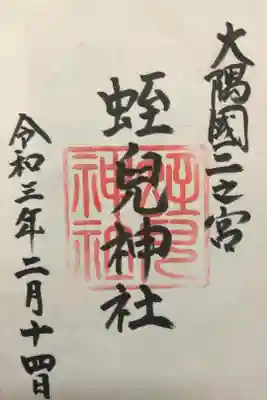 大隅國二之宮
蛭兒神社
令和三年二月十四日
蛭兒神社